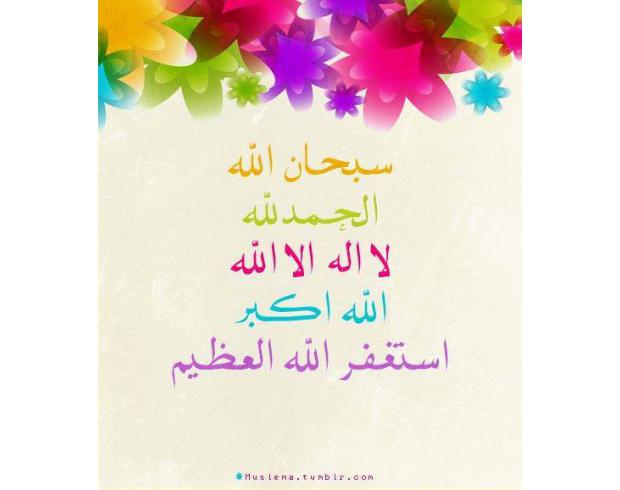 سبحان الله
الحمدلله
لا اله الا الله
الله اكبر
استغفر الله العظيم
Muslema.tumblr.com